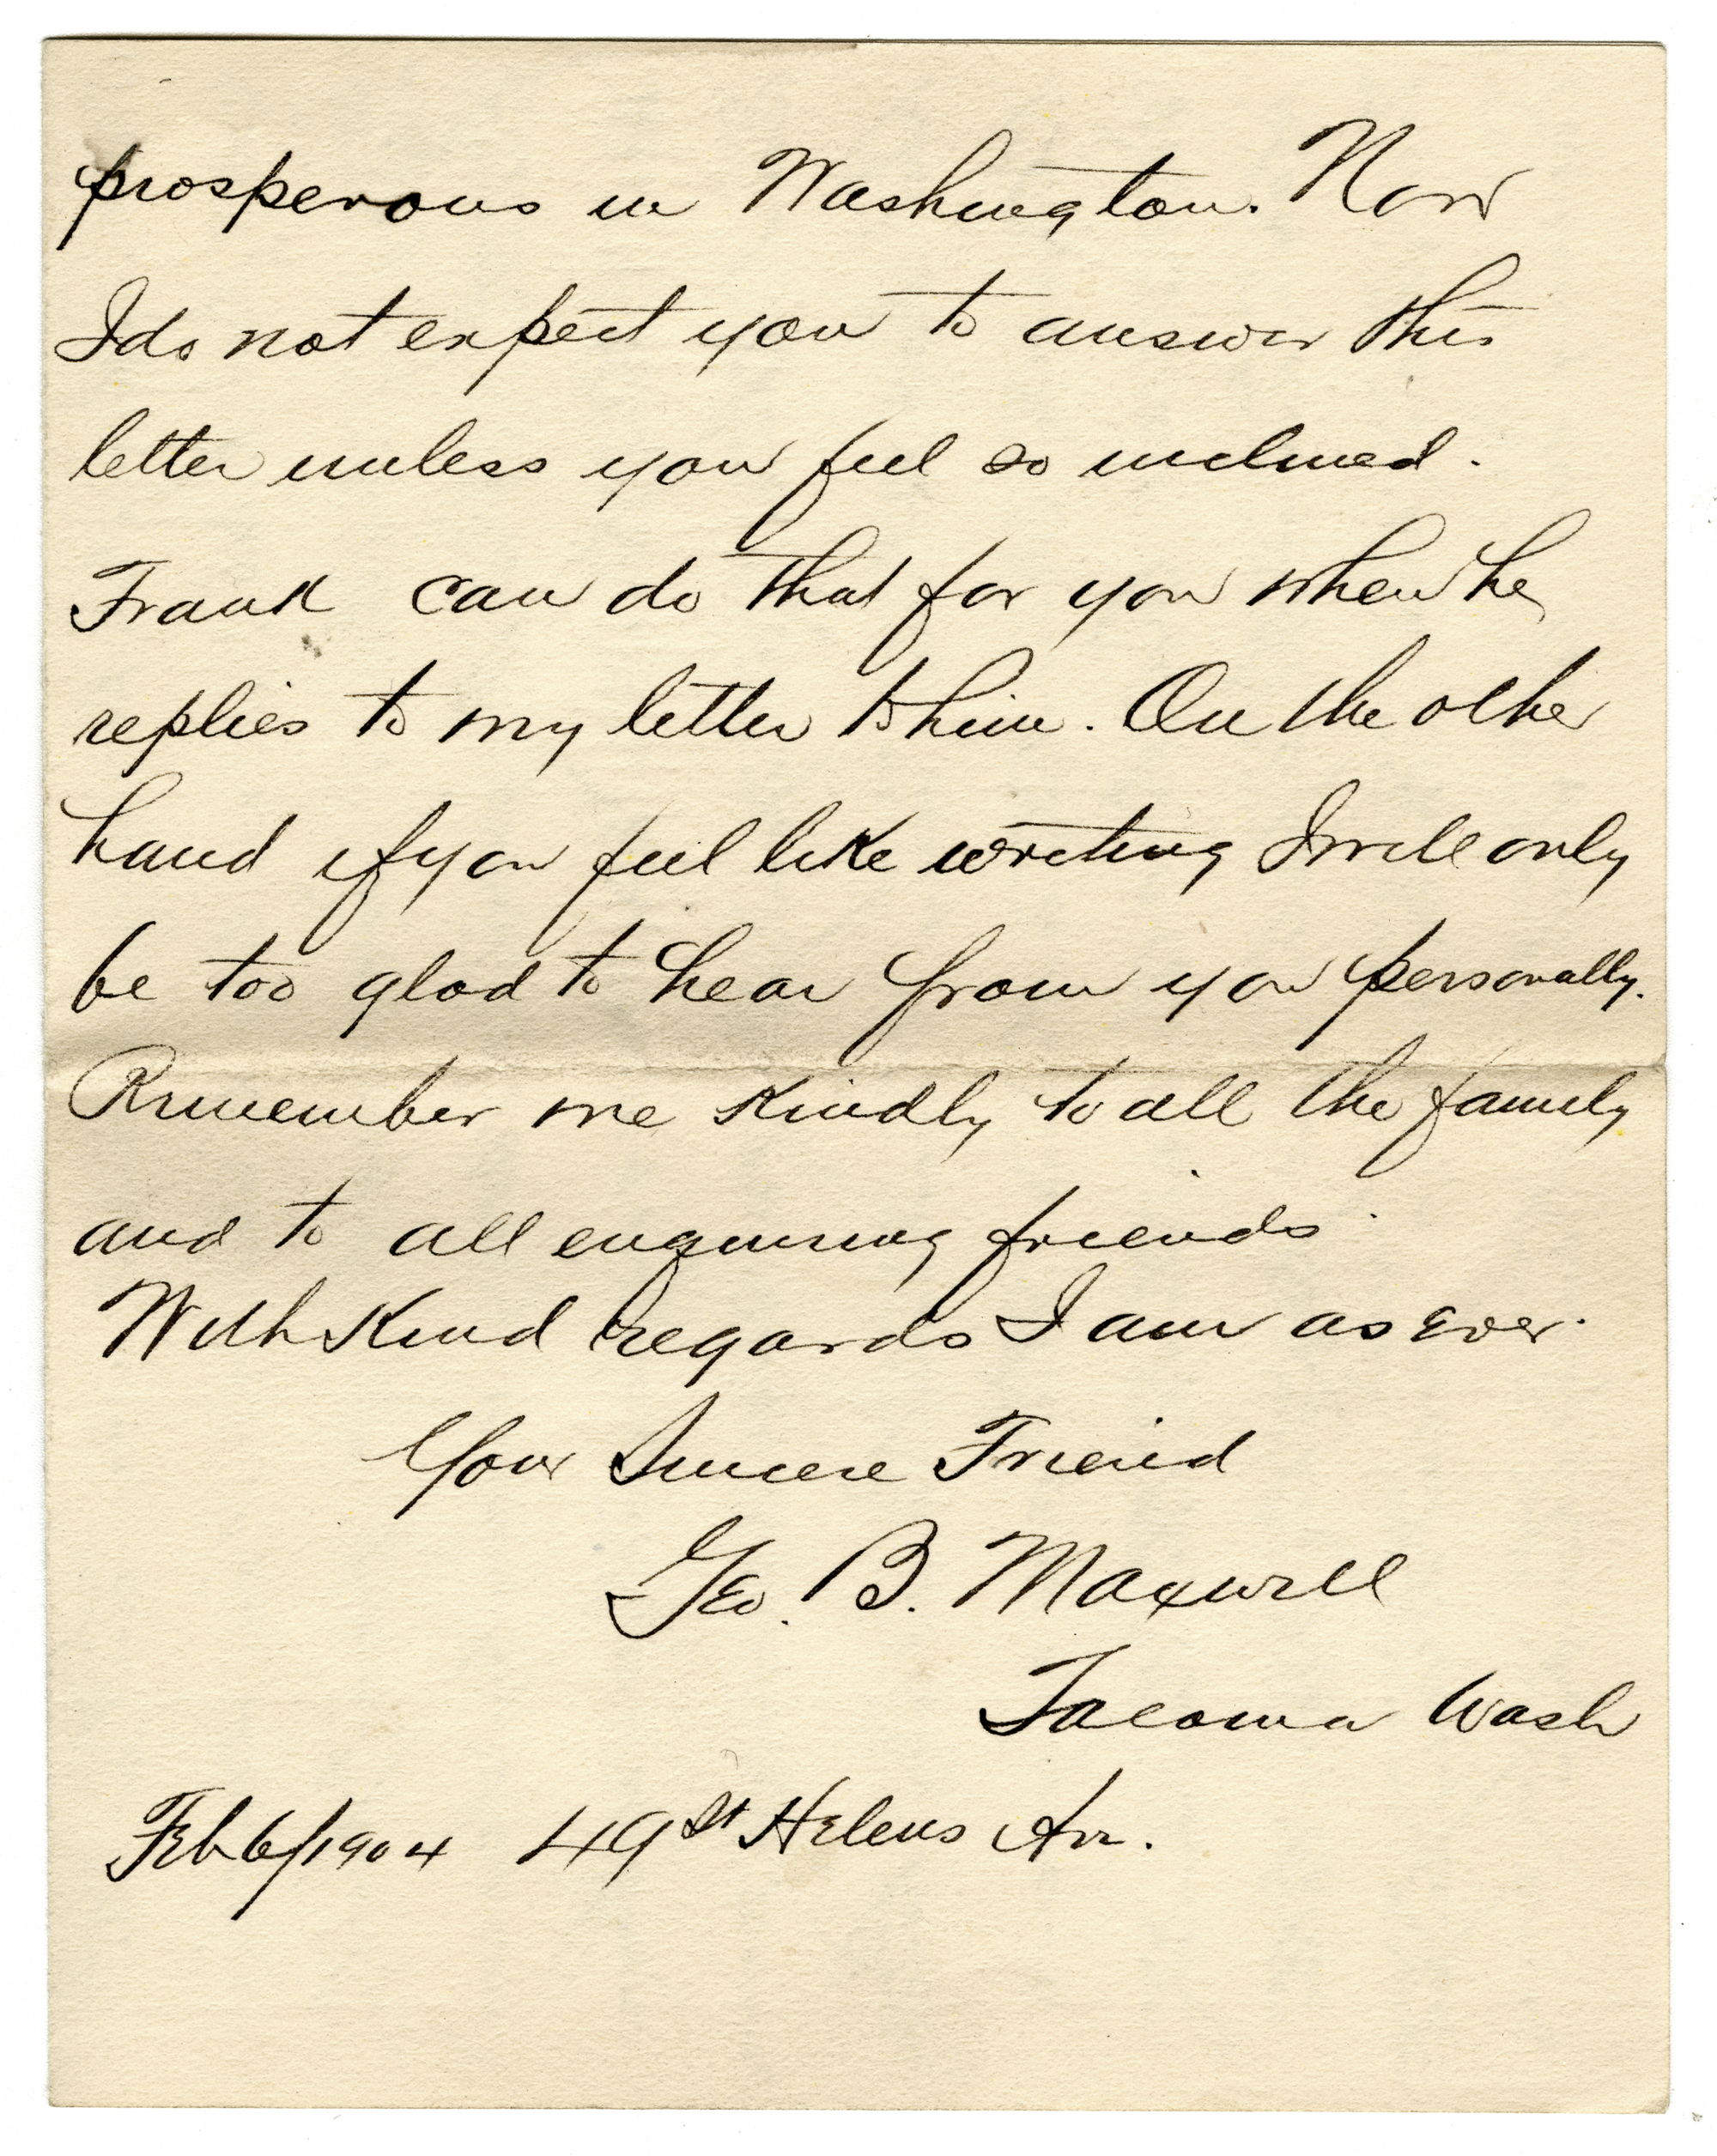 prosperous in Washington. Now
I do not expect you to answer this
letter unless you feel so inclined.
Frank can do that for you when he
replies to my letter to him. On the other
hand if you feel like writing I will only
be too glad to hear from you personally.
Remember me kindly to all the family
and to all enquiring friends.
With kind regards I am as ever.
Your Sincere Friend
Geo. B. Maxwell
Tacoma Wash
Feb 6/1904 49 St Helens Av.